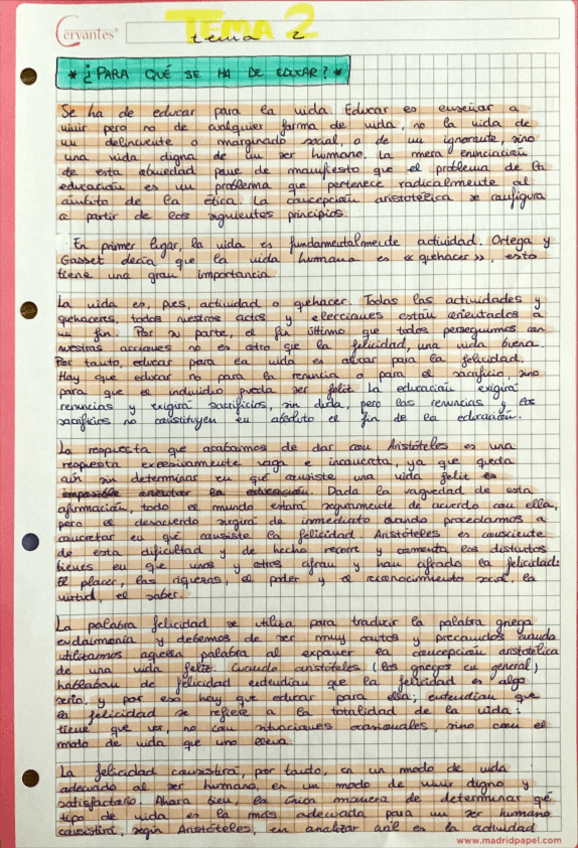 TEMA 2
Cervantes®
tema 2
* ¿PARA QUÉ SE HA DE EDUCAR? *
Se ha de educar para la vida. Educar es enseñar a
vivir pero no de cualquier forma de vida, no la vida de
un delincuente o marginado social, o de un ignorante, sino
una vida digna de un ser humano. La mera enunciación
de esta obviedad pone de manifiesto que el problema de la
educación es un problema que pertenece radicalmente al
ámbito de la ética. La concepción aristotélica se configura
a partir de los siguientes principios.
En primer lugar, la vida es fundamentalmente actividad. Ortega y
Gasset decía que la vida humana es « quehacer », esto
tiene una gran importancia.
La vida es, pues, actividad o quehacer. Todas las actividades y
quehaceres, todos nuestros actos y elecciones están orientados a
un fin. Por su parte, el fin último que todos perseguimos con
nuestras acciones no es otro que la felicidad, una vida buena.
Por tanto, educar para la vida es educar para la felicidad.
Hay que educar no para la renuncia o para el sacrificio, sino
para que el individuo pueda ser feliz. La educación exigirá
renuncias y exigirá sacrificios, sin duda, pero las renuncias y los
sacrificios no constituyen en absoluto el fin de la educación.
La respuesta que acabamos de dar con Aristóteles es una
respuesta excesivamente vaga e incorrecta, ya que queda
aún sin determinar en qué consiste una vida feliz es
imposible orientar la educación. Dada la vaguedad de esta
afirmación, todo el mundo estará seguramente de acuerdo con ella,
pero el desacuerdo surgirá de inmediato cuando procedamos a
concretar en qué consiste la felicidad. Aristóteles es consciente
de esta dificultad y de hecho recorre y comenta los distintos
bienes en que unos y otros cifran y han cifrado la felicidad:
El placer, las riquezas, el poder y el reconocimiento social, la
virtud, el saber.
La palabra felicidad se utiliza para traducir la palabra griega
eudaimonía y debemos de ser muy cautos y precavidos cuando
utilizamos aquella palabra al exponer la concepción aristotélica
de una vida feliz. Cuando aristóteles (los griegos en general)
hablaban de felicidad entendían que la felicidad es algo
serio, y por eso hay que educar para ella; entendían que
la felicidad se refiere a la totalidad de la vida:
tiene que ver, no con situaciones ocasionales, sino con el
modo de vida que uno lleva.
La felicidad consistirá, por tanto, en un modo de vida
adecuado al ser humano, en un modo de vivir digno y
satisfactorio. Ahora bien, la única manera de determinar qué
tipo de vida es la más adecuada para un ser humano
consistirá, según Aristóteles, en analizar cuál es la actividad
www.madridpapel.com